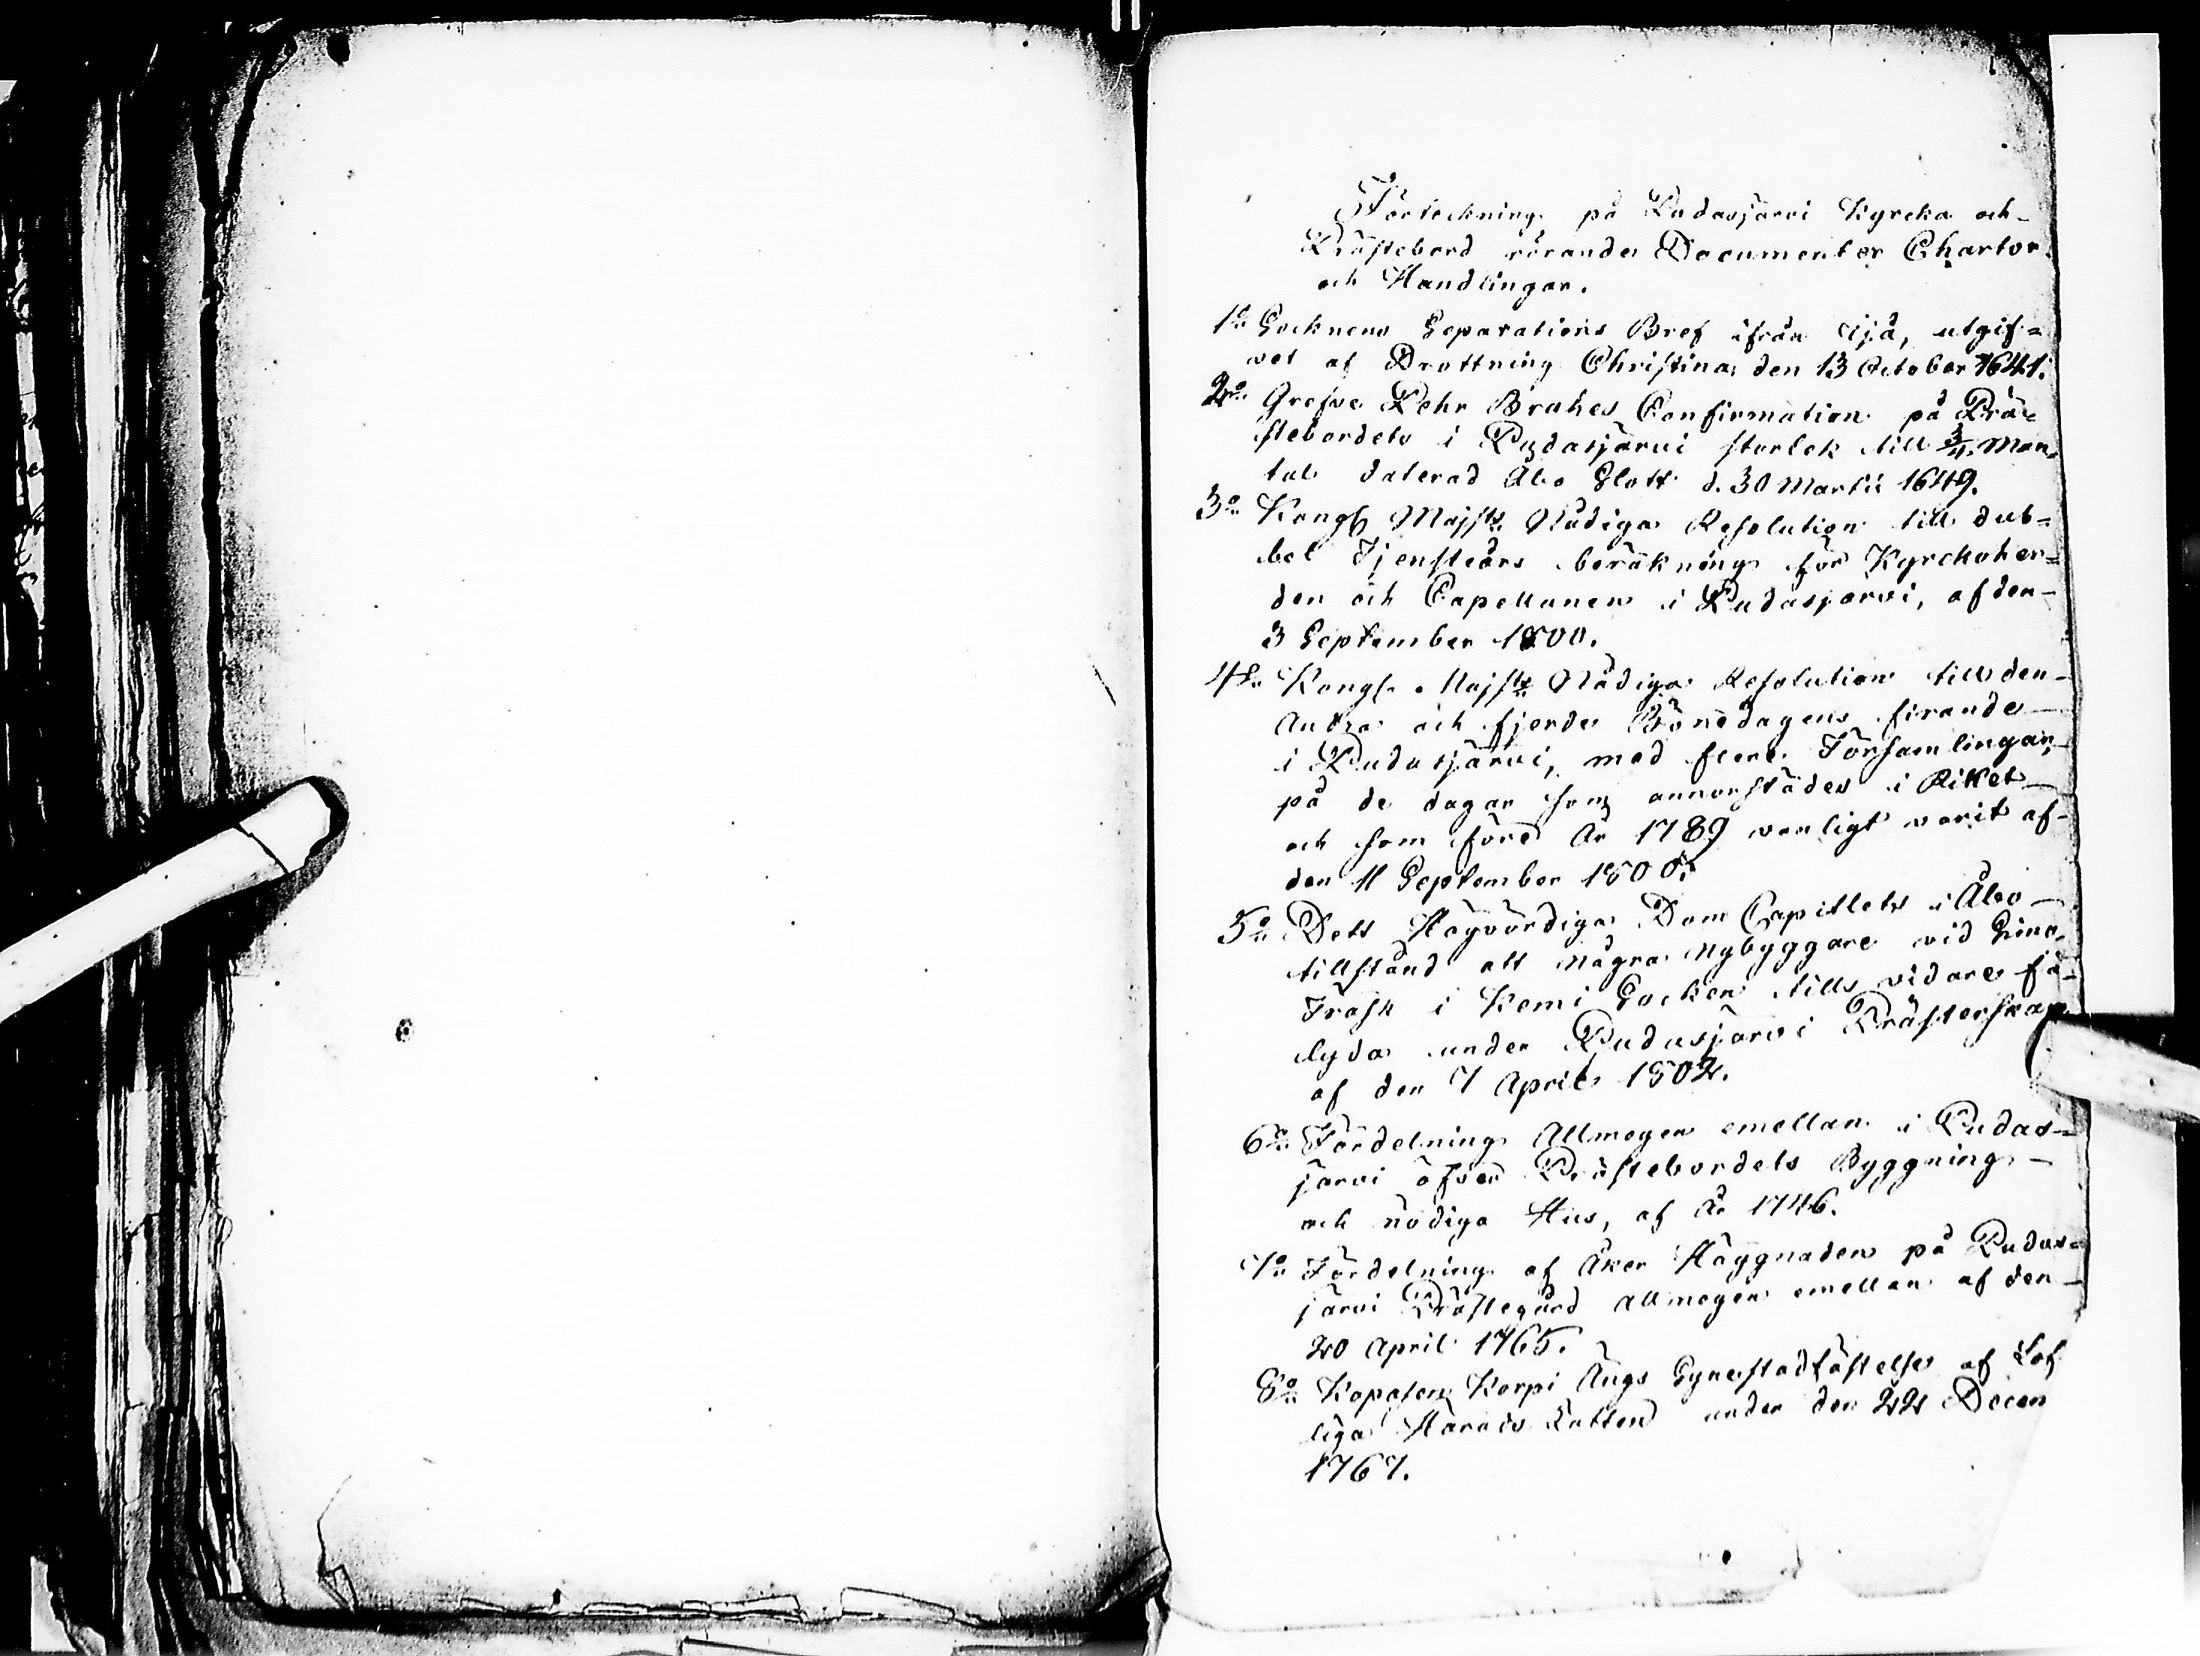 Förteckning på Pudasjärvi Kyrcka och
Prästebord rörande Documenter Chartor
och Handlingar.
1o Socknens Separations Bref ifrån Ijå, utgif=
vet af Drottning Christina den 13 October 1641.
2o Grefve Pehr Brahes Confirmation på Prä=
stebordets i Pudasjärvi storlek till 3/4 Man
tal daterad Åbo Slott d. 30 Martii 1649.
3o Kongl Majsts Nådiga Resolution till dub=
bel Tjensteårs beräkning för Kyrckoher=
den och Capellanen i Pudasjärvi, af den
3 September 1800.
4o Kongl. Majsts Nådiga Resolution till den
Andra och fjerde Bönedagens firande
i Pudasjärvi, med flere Församlingar,
på de dagar som annorstädes i Riket
och som före År 1789 vanligt varit af
den 11 September 1800.
5o Dets Högvördiga Dom Capitlets i Åbo
tillstånd att några Nybyggare vid Simo
Träsk i Kemi Socken tills vidare få
lyda under Pudasjärvi Prästerskap
af den 7 April 1802.
6o Fördelning Allmogen emellan i Pudas=
järvi öfver Prästebordets Byggning
och nödiga Hus, af År 1746.
7o Fördelning af Åker Häggnaden på Pudas=
järvi Prästegård allmogen emellan af den
20 April 1765.
8o Korpi Ängs Synestadfästelse af Lof
liga Härads Rätten under den 22 Decem
1767.